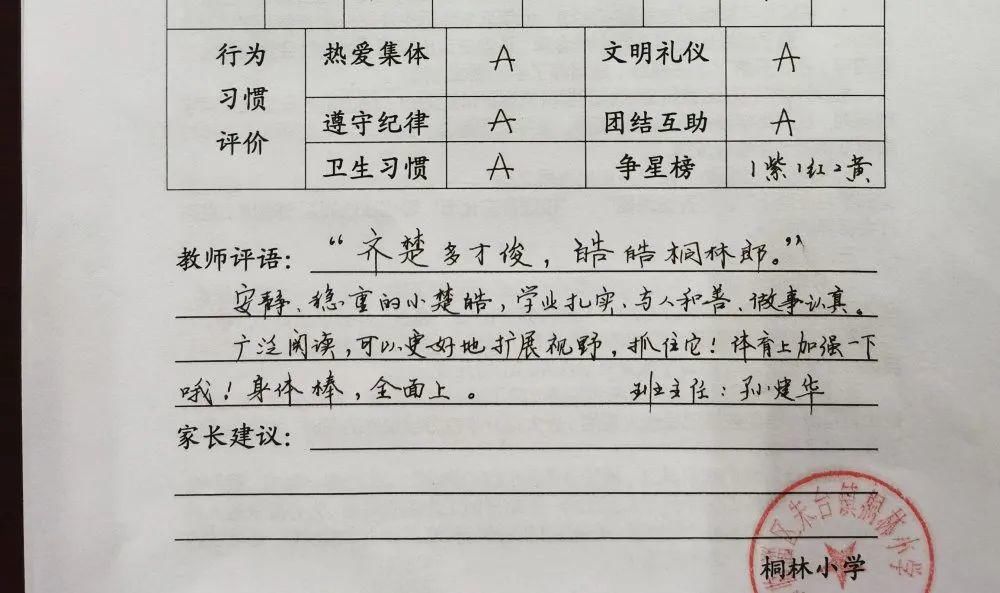 行为习惯评价
热爱集体 A 文明礼仪 A
遵守纪律 A 团结互助 A
卫生习惯 A 争星榜 1紫1红2黄
教师评语：“齐楚多才俊，皓皓桐林郎。”
安静、稳重的小楚皓，学业扎实、与人和善、做事认真。
广泛阅读，可以更好地扩展视野，抓住它！体育上加强一下
哦！身体棒，全面上。 班主任：孙建华
家长建议：
区朱台镇桐林小学
桐林小学